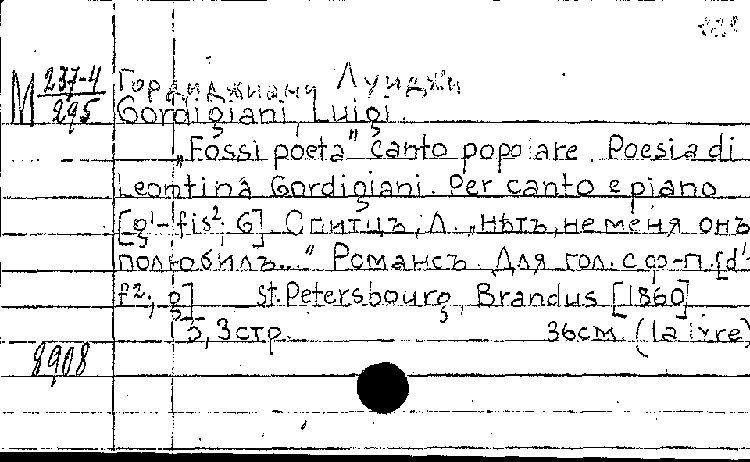 М 237-4/295
Гордиджиани Луиджи
Gordigiani, Luigi.
„Fossi poeta" Canto popolare. Poesia di
Leontina Gordigiani. Per canto e piano
[g¹-fis²; G]. Спитцъ, Л. „Нѣтъ, не меня онъ
полюбилъ..." Романсъ. Для гол. с ф-п. [d¹-
f²; g] St. Petersbourg, Brandus [1860]
5, 3 стр. 36 см (la lyre)
8908